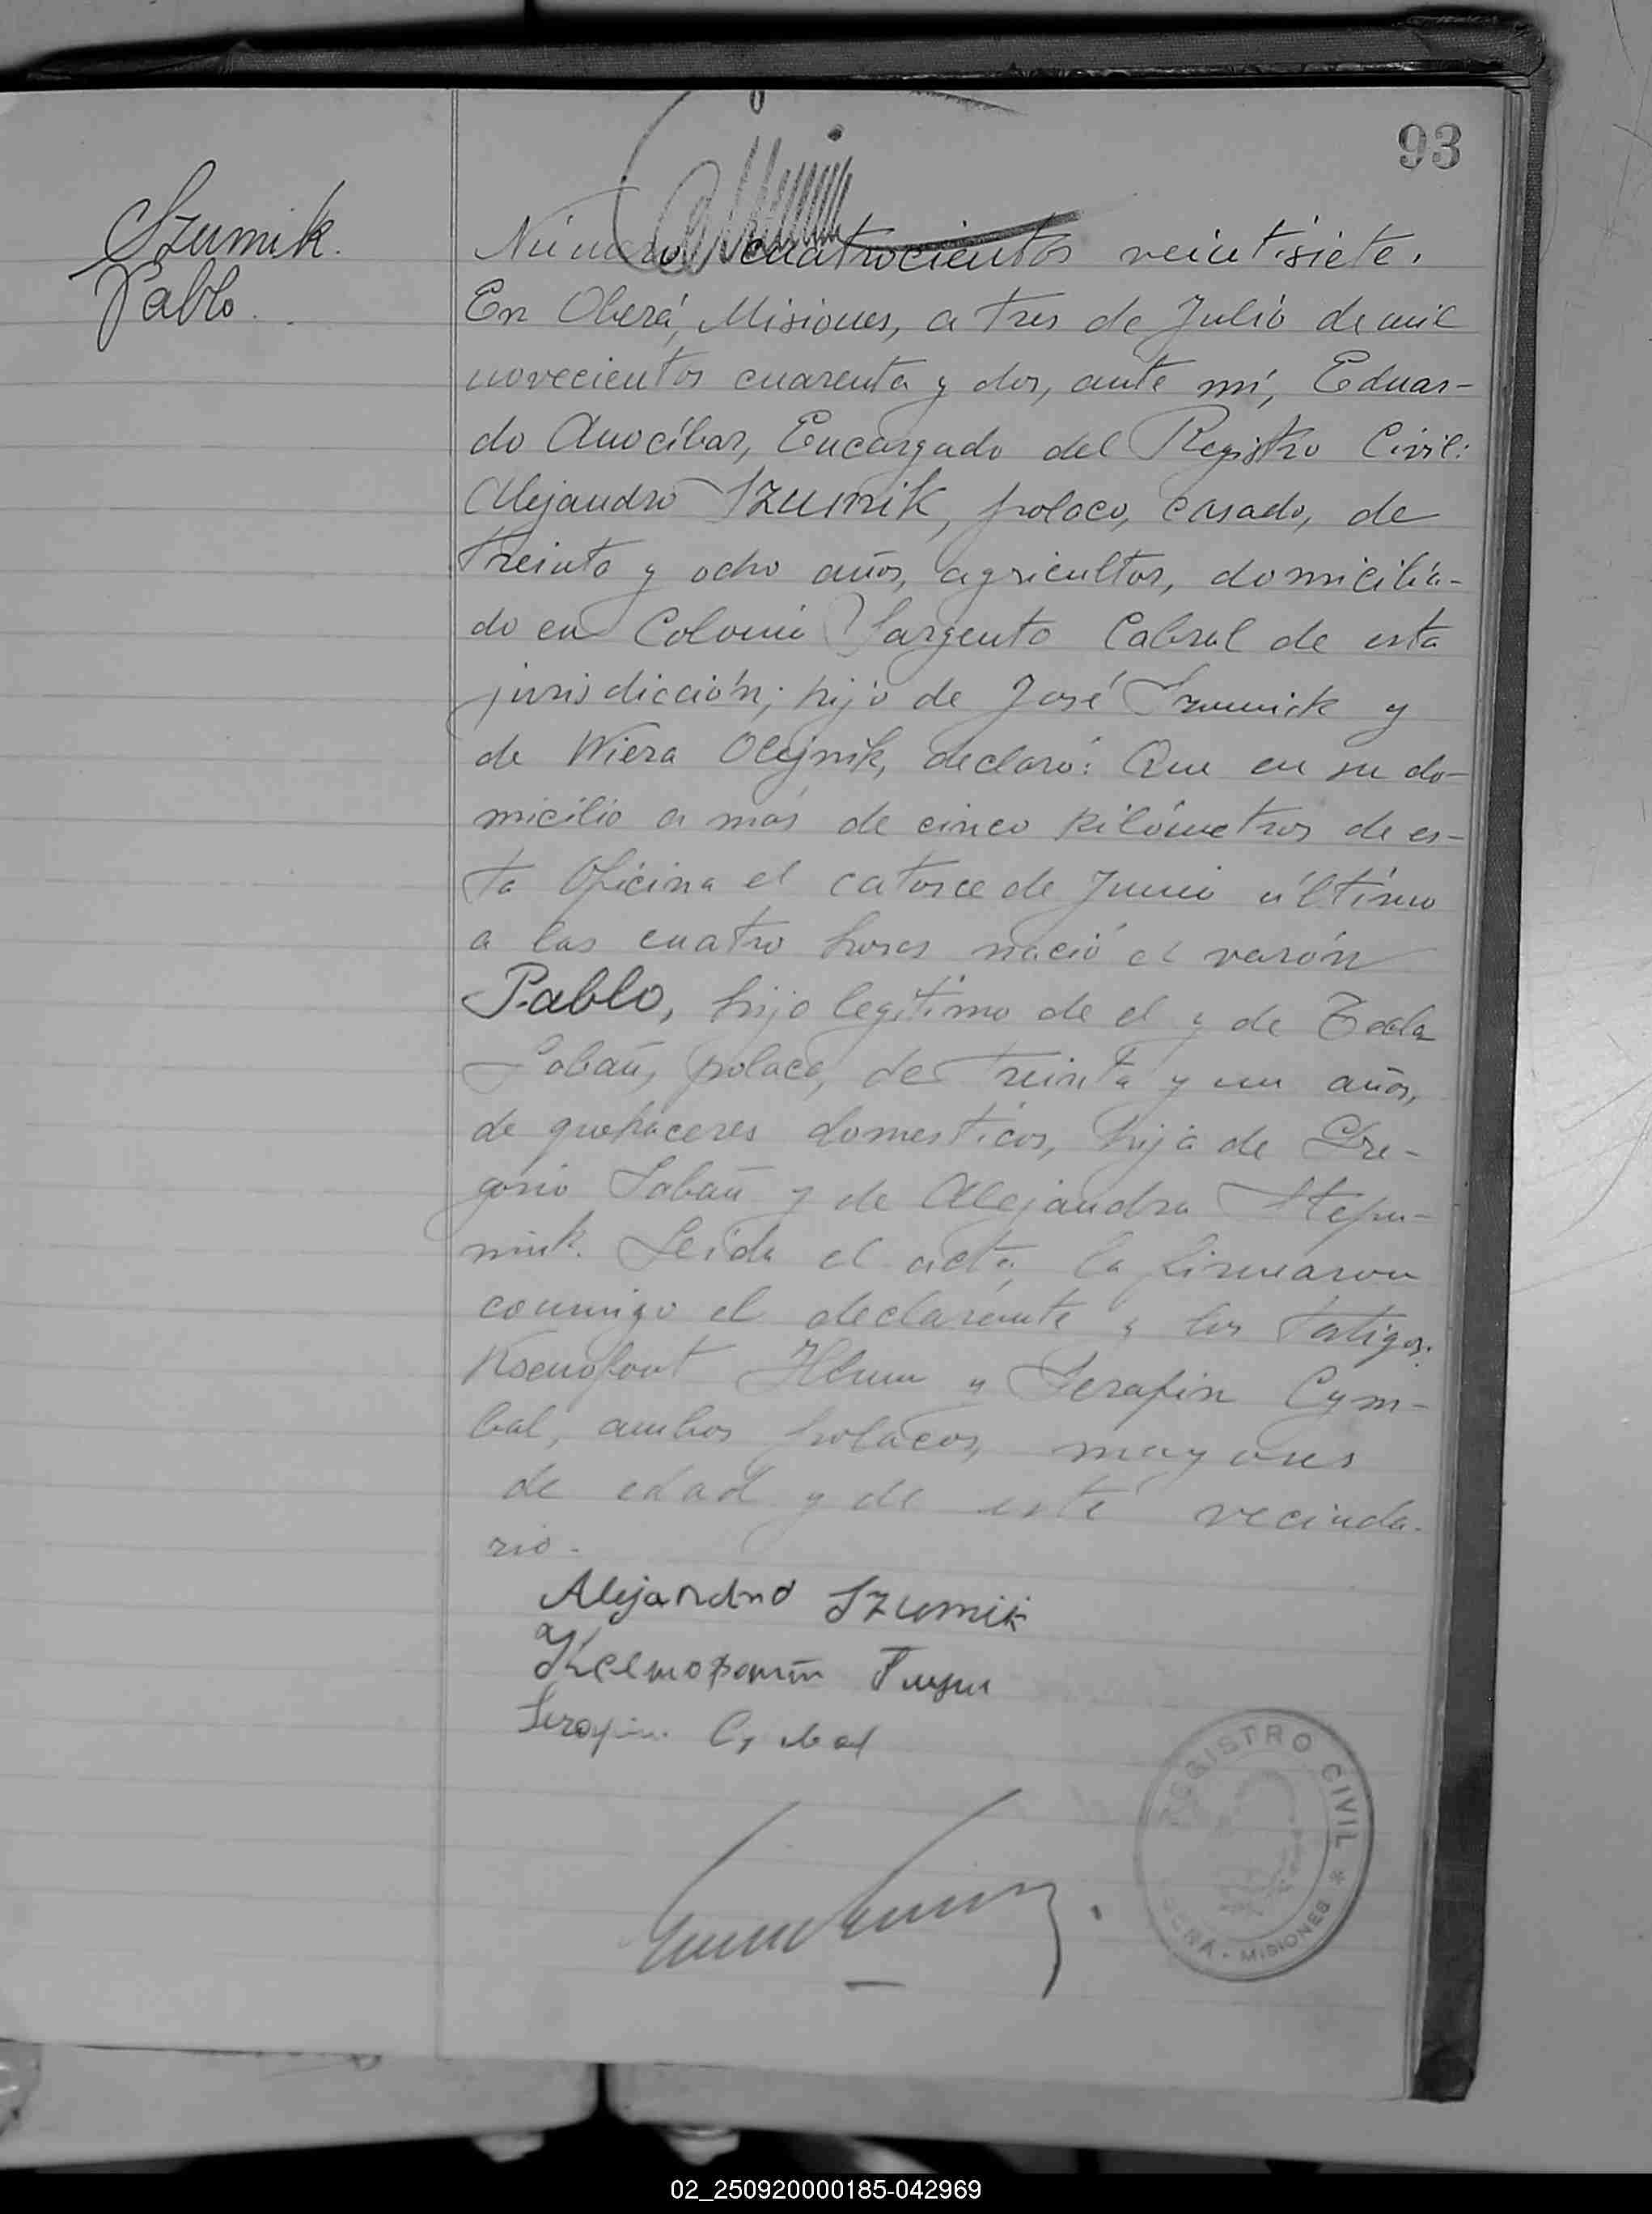 93
Szumik.
Pablo.
Número cuatrocientos veintisiete.
En Oberá, Misiones, a tres de Julio de mil
novecientos cuarenta y dos, ante mí, Eduar-
do Anocíbar, Encargado del Registro Civil:
Alejandro SZUMIK, polaco, casado, de
treinta y ocho años, agricultor, domicilia-
do en Colonia Sargento Cabral de esta
jurisdicción; hijo de José Szumik y
de Wiera Olejnik, declaró: Que en su do-
micilio a más de cinco kilómetros de es-
ta Oficina el catorce de Junio último
a las cuatro horas nació el varón
Pablo, hijo legítimo de el y de Tecla
Sobañ, polaca, de treinta y un años,
de quehaceres domesticos, hija de Gre-
gorio Sobañ y de Alejandra Stepa-
niuk. Leida el acta, la firmaron
conmigo el declarante y los testigos:
Ksenofont y Serafin Cym-
bal, ambos polacos, mayores
de edad y de este vecinda-
rio.-
Alejandro Szumik
Serafin
REGISTRO CIVIL * OBERÁ - MISIONES
02_250920000185-042969